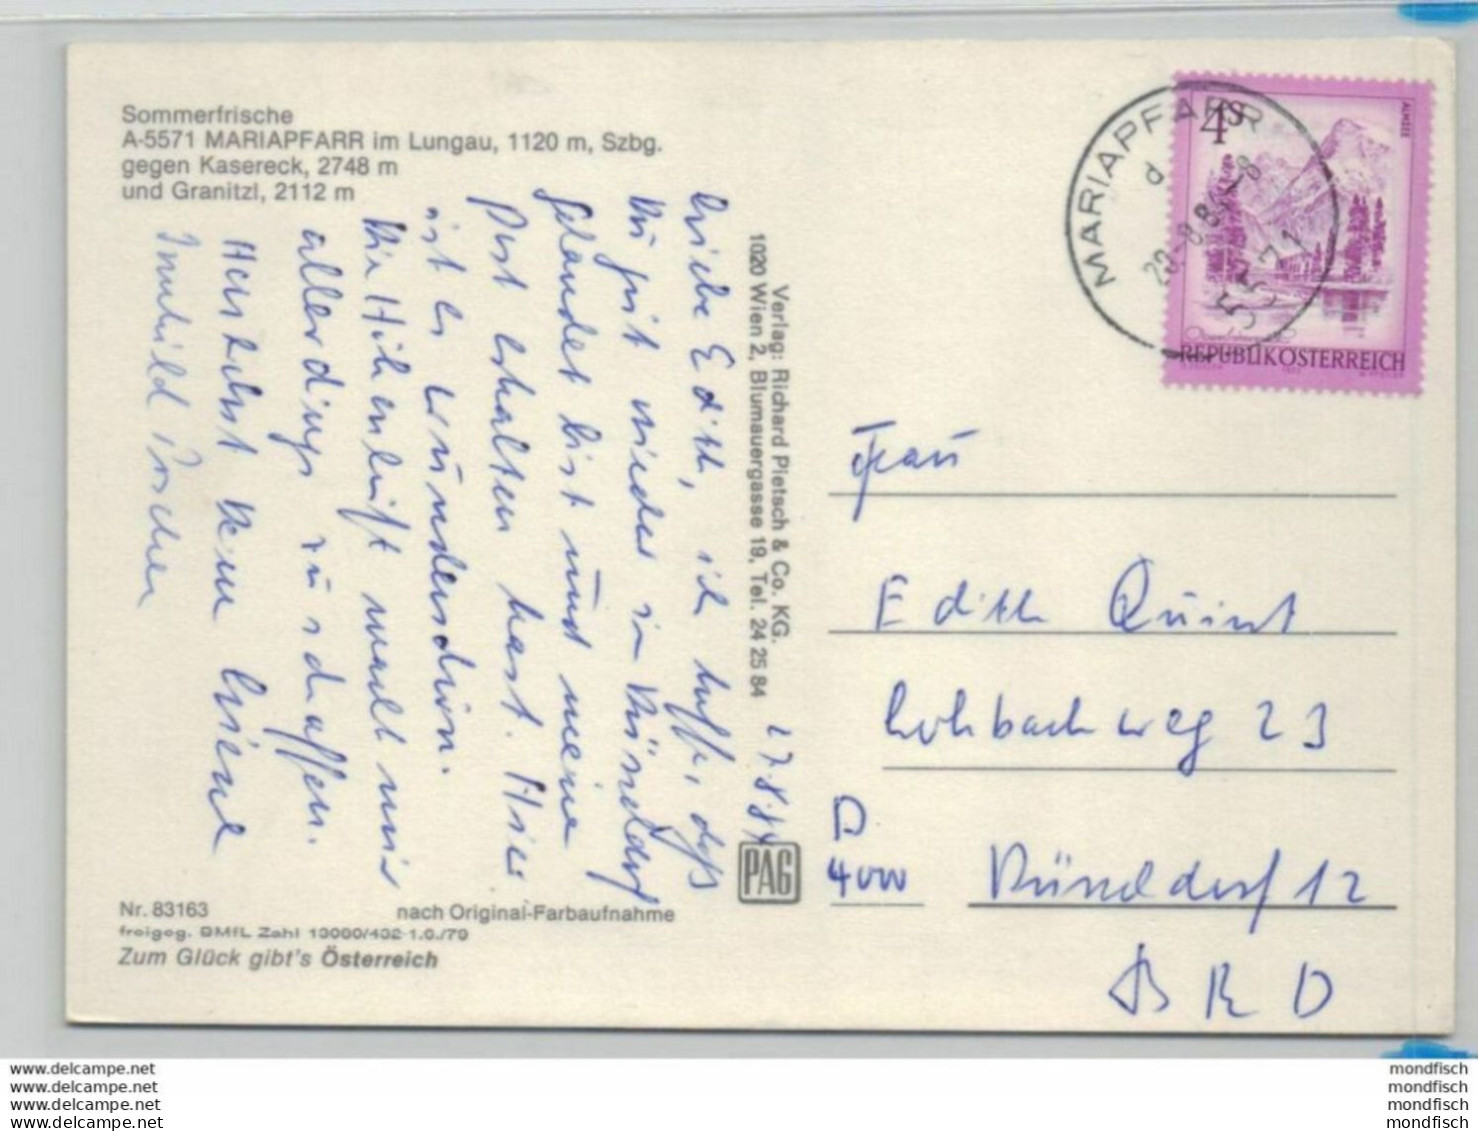 Sommerfrische
A-5571 MARIAPFARR im Lungau, 1120 m, Szbg.
gegen Kasereck, 2748 m
und Granitzl, 2112 m
27.8.84
Liebe Edith, ich hoffe, daß
Du gut wieder in Düsseldorf
gelandet bist und meine
Post erhalten hast. Hier
ist es wunderschön.
Die Höhenluft macht mir
allerdings zu schaffen.
Herzlichst Deine
Irmhild
Verlag: Richard Pietsch & Co. KG.
1020 Wien 2, Blumauergasse 19, Tel. 24 25 84
PAG
MARIAPFARR
d
5571
4S
ALMSEE
REPUBLIK ÖSTERREICH
Frau
Edith Quint
Lohbachweg 23
D
4000 Düsseldorf 12
BRD
Nr. 83163
nach Original-Farbaufnahme
freigeg. BMfL Zahl 13080/432-1.6./79
Zum Glück gibt's Österreich
www.delcampe.net
www.delcampe.net
www.delcampe.net
www.delcampe.net
mondfisch
mondfisch
mondfisch
mondfisch